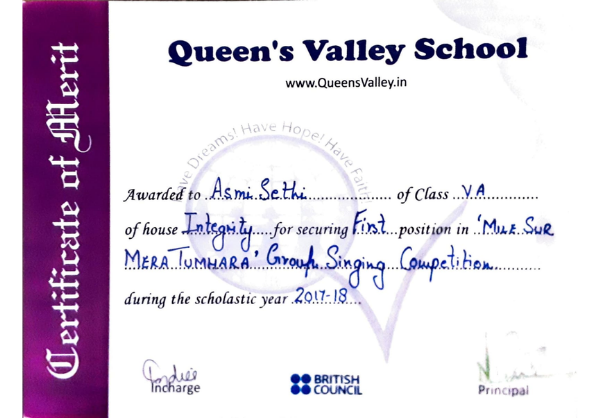 Certificate of Merit
Queen's Valley School
www.QueensValley.in
Have Dreams! Have Hope! Have Faith
Awarded to Asmi Sethi of Class VA
of house Integrity for securing First position in 'MILE SUR
MERA TUMHARA' Group Singing Competition
during the scholastic year 2017-18
Incharge
BRITISH
COUNCIL
Principal